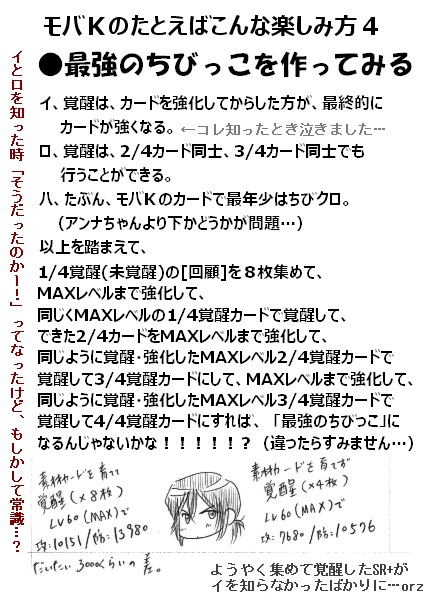 モバKのたとえばこんな楽しみ方4
●最強のちびっこを作ってみる
イ、覚醒は、カードを強化してからした方が、最終的に
カードが強くなる。←コレ知ったとき泣きました…
ロ、覚醒は、2/4カード同士、3/4カード同士でも
行うことができる。
ハ、たぶん、モバKのカードで最年少はちびクロ。
(アンナちゃんより下かどうかが問題…)
以上を踏まえて、
1/4覚醒(未覚醒)の[回顧]を8枚集めて、
MAXレベルまで強化して、
同じくMAXレベルの1/4覚醒カードで覚醒して、
できた2/4カードをMAXレベルまで強化して、
同じように覚醒・強化したMAXレベル2/4覚醒カードで
覚醒して3/4覚醒カードにして、MAXレベルまで強化して、
同じように覚醒・強化したMAXレベル3/4覚醒カードで
覚醒して4/4覚醒カードにすれば、「最強のちびっこ」に
なるんじゃないかな!!!!!!?(違ったらすみません…)
イとロを知った時「そうだったのかー!」ってなったけど、もしかして常識…?
素材カードを育てて
覚醒(×8枚)
LV60(MAX)で
攻:10151/防:13980
だいたい3000くらいの差。
素材カードを育てず
覚醒(×4枚)
LV60(MAX)で
攻:7680/防:10576
ようやく集めて覚醒したSR+が
イを知らなかったばかりに…orz